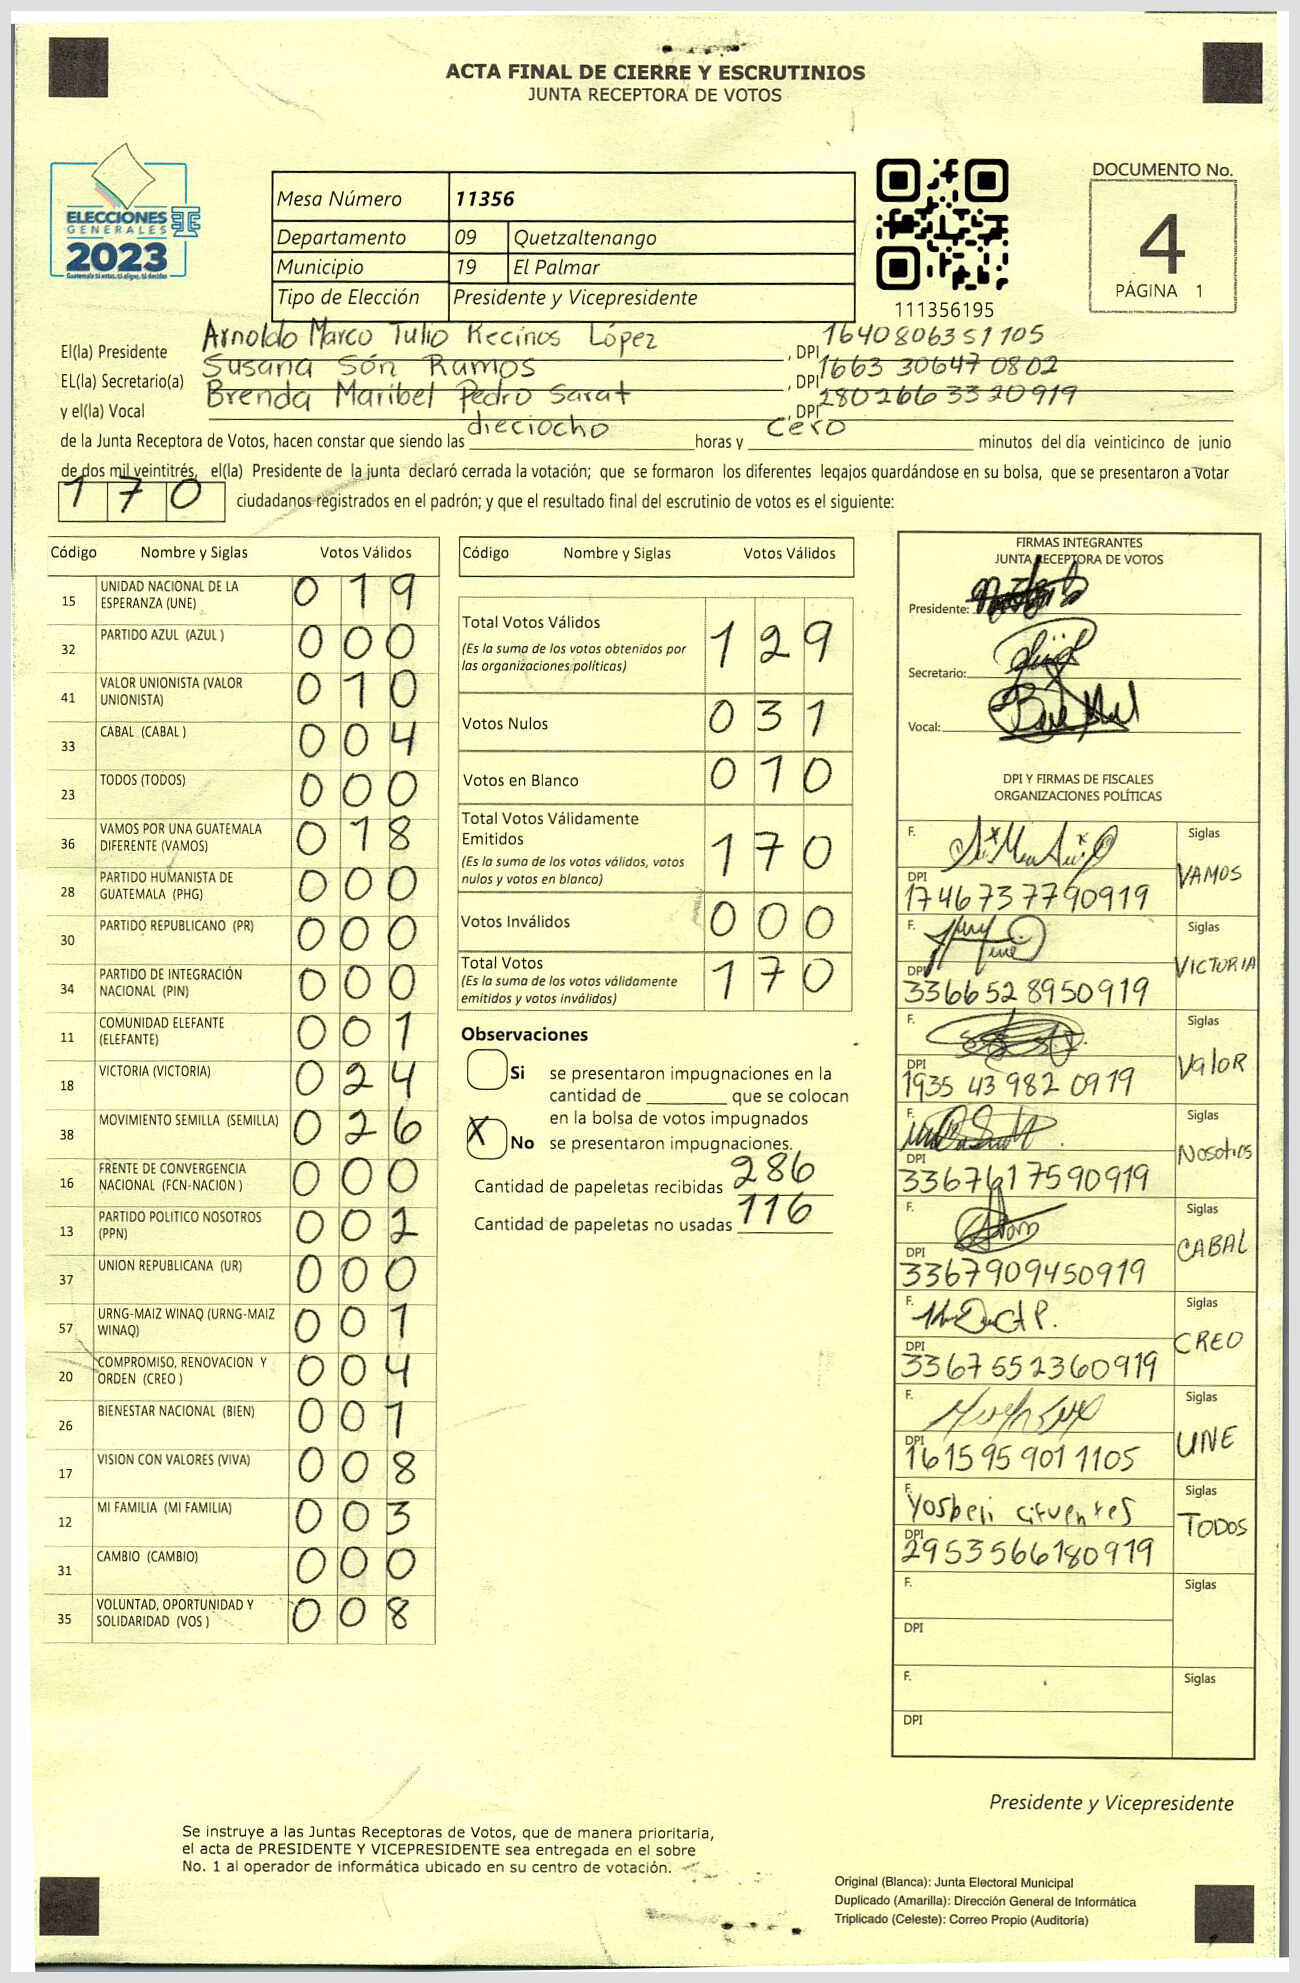 ACTA FINAL DE CIERRE Y ESCRUTINIOS
JUNTA RECEPTORA DE VOTOS
ELECCIONES
GENERALES
2023
Mesa Número 11356
Departamento 09 Quetzaltenango
Municipio 19 El Palmar
Tipo de Elección Presidente y Vicepresidente
111356195
DOCUMENTO No.
4
PÁGINA 1
El(la) Presidente Arnoldo Marco Tulio Recinos López, DPI 1640806351105
EL(la) Secretario(a) Susana Són Ramos, DPI 1663 30647 0802
y el(la) Vocal Brenda Maribel Pedro Sarat, DPI 2802663320919
de la Junta Receptora de Votos, hacen constar que siendo las dieciocho horas y cero minutos del día veinticinco de junio
de dos mil veintitrés, el(la) Presidente de la junta declaró cerrada la votación; que se formaron los diferentes legajos guardándose en su bolsa, que se presentaron a votar
170 ciudadanos registrados en el padrón; y que el resultado final del escrutinio de votos es el siguiente:
Código Nombre y Siglas Votos Válidos
15 UNIDAD NACIONAL DE LA ESPERANZA (UNE) 019
32 PARTIDO AZUL (AZUL ) 000
41 VALOR UNIONISTA (VALOR UNIONISTA) 010
33 CABAL (CABAL ) 004
23 TODOS (TODOS) 000
36 VAMOS POR UNA GUATEMALA DIFERENTE (VAMOS) 018
28 PARTIDO HUMANISTA DE GUATEMALA (PHG) 000
30 PARTIDO REPUBLICANO (PR) 000
34 PARTIDO DE INTEGRACIÓN NACIONAL (PIN) 000
11 COMUNIDAD ELEFANTE (ELEFANTE) 001
18 VICTORIA (VICTORIA) 024
38 MOVIMIENTO SEMILLA (SEMILLA) 026
16 FRENTE DE CONVERGENCIA NACIONAL (FCN-NACION ) 000
13 PARTIDO POLITICO NOSOTROS (PPN) 002
37 UNION REPUBLICANA (UR) 000
57 URNG-MAIZ WINAQ (URNG-MAIZ WINAQ) 001
20 COMPROMISO, RENOVACION Y ORDEN (CREO ) 004
26 BIENESTAR NACIONAL (BIEN) 001
17 VISION CON VALORES (VIVA) 008
12 MI FAMILIA (MI FAMILIA) 003
31 CAMBIO (CAMBIO) 000
35 VOLUNTAD, OPORTUNIDAD Y SOLIDARIDAD (VOS ) 008
Código Nombre y Siglas Votos Válidos
Total Votos Válidos 129
(Es la suma de los votos obtenidos por
las organizaciones políticas)
Votos Nulos 031
Votos en Blanco 010
Total Votos Válidamente
Emitidos 170
(Es la suma de los votos válidos, votos
nulos y votos en blanco)
Votos Inválidos 000
Total Votos 170
(Es la suma de los votos válidamente
emitidos y votos inválidos)
Observaciones
Si se presentaron impugnaciones en la
cantidad de ________ que se colocan
en la bolsa de votos impugnados
X No se presentaron impugnaciones.
Cantidad de papeletas recibidas 286
Cantidad de papeletas no usadas 116
FIRMAS INTEGRANTES
JUNTA RECEPTORA DE VOTOS
Presidente:
Secretario:
Vocal:
DPI Y FIRMAS DE FISCALES
ORGANIZACIONES POLÍTICAS
F. Siglas VAMOS
DPI 1746737790919
F. Siglas VICTORIA
DPI 3366528950919
F. Siglas Valor
DPI 1935 43 982 0919
F. Siglas Nosotros
DPI 3367617590919
F. Siglas CABAL
DPI 3367909450919
F. Siglas CREO
DPI 3367552360919
F. Siglas UNE
DPI 1615 95 901 1105
F. Yosbeli cifuentes Siglas TODOS
DPI 2953566180919
F. Siglas
DPI
F. Siglas
DPI
Presidente y Vicepresidente
Se instruye a las Juntas Receptoras de Votos, que de manera prioritaria,
el acta de PRESIDENTE Y VICEPRESIDENTE sea entregada en el sobre
No. 1 al operador de informática ubicado en su centro de votación.
Original (Blanca): Junta Electoral Municipal
Duplicado (Amarilla): Dirección General de Informática
Triplicado (Celeste): Correo Propio (Auditoría)